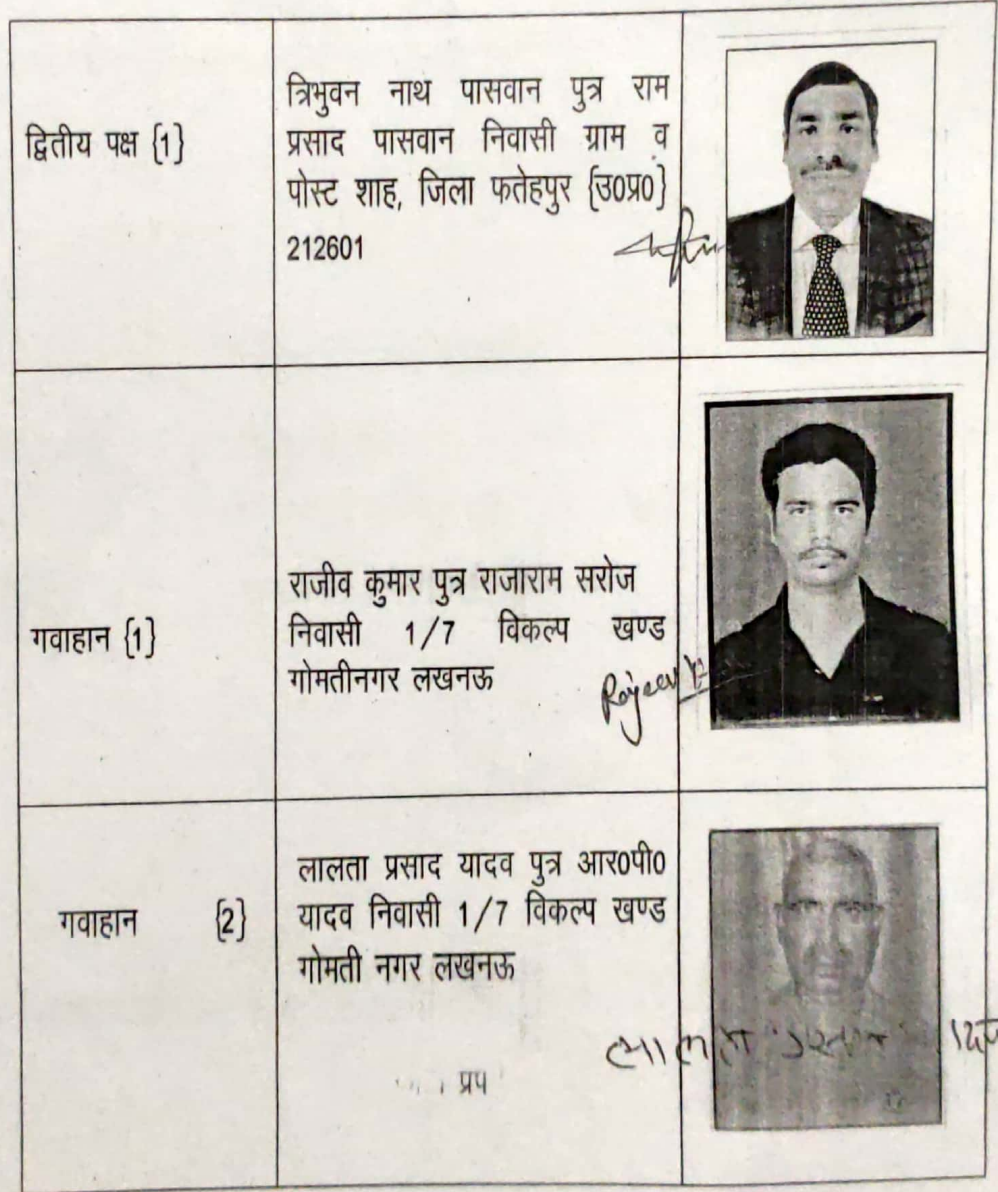 द्वितीय पक्ष {1}
त्रिभुवन नाथ पासवान पुत्र राम
प्रसाद पासवान निवासी ग्राम व
पोस्ट शाह, जिला फतेहपुर {उ0प्र0}
212601
गवाहान {1}
राजीव कुमार पुत्र राजाराम सरोज
निवासी 1/7 विकल्प खण्ड
गोमतीनगर लखनऊ
Rajeev
गवाहान {2}
लालता प्रसाद यादव पुत्र आर0पी0
यादव निवासी 1/7 विकल्प खण्ड
गोमती नगर लखनऊ
प्रप